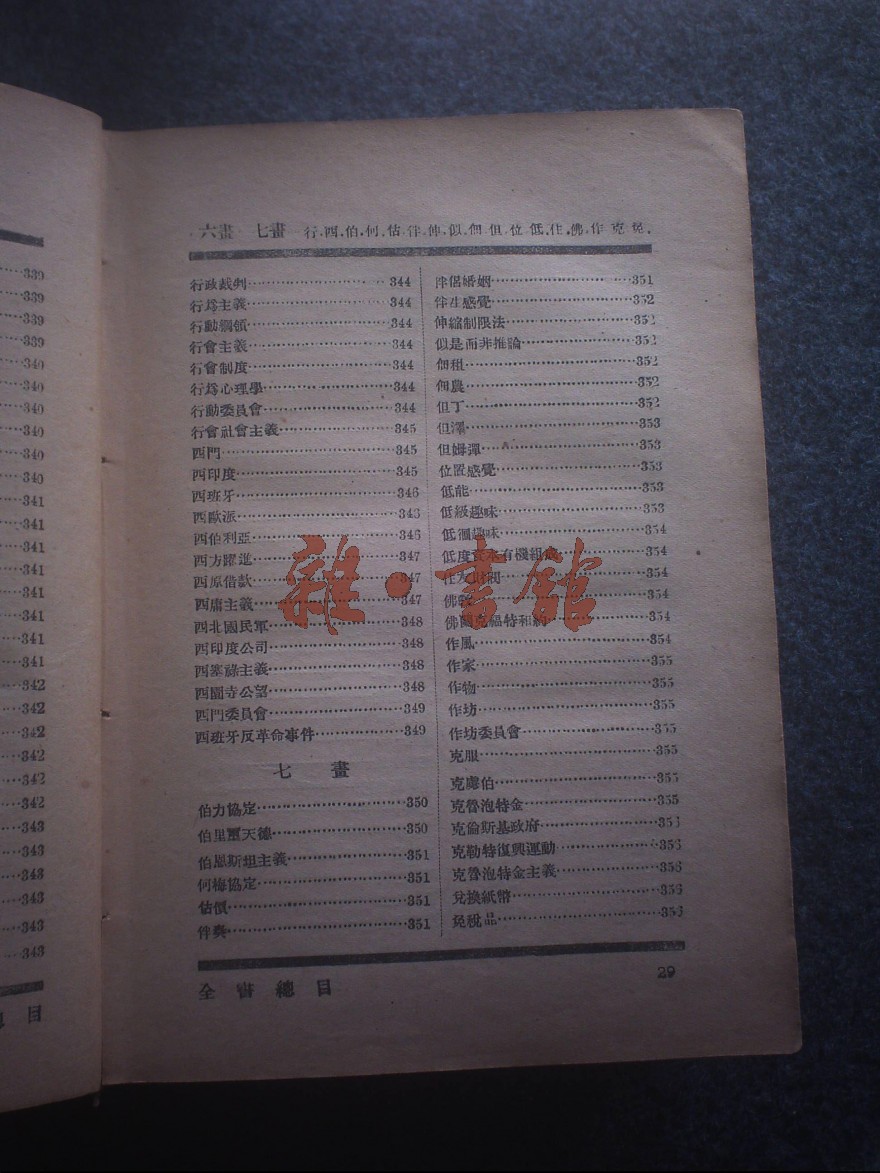 339
339
339
340
340
340
340
340
340
341
341
341
341
341
341
341
341
342
342
342
342
342
342
343
343
343
343
343
343
目
六畫 七畫 行.西.伯.何.估.伴.伸.似.佃.但.位.低.住.佛.作.克.免.
行政裁判 344
行爲主義 344
行動綱領 344
行會主義 344
行會制度 344
行爲心理學 344
行動委員會 344
行會社會主義 345
西門 345
西印度 345
西班牙 346
西歐派 346
西伯利亞 346
西方躍進 347
西原借款 347
西庸主義 347
西北國民軍 348
西印度公司 348
西塞祿主義 348
西園寺公望 348
西門委員會 349
西班牙反革命事件 349
七畫
伯力協定 350
伯里璽天德 350
伯恩斯坦主義 351
何梅協定 351
估價 351
伴奏 351
伴侶婚姻 351
伴生感覺 352
伸縮制限法 352
似是而非推論 352
佃租 352
佃農 352
但丁 352
但澤 353
但姆彈 353
位置感覺 353
低能 353
低級趣味 353
低徊趣味 354
低度資本有機組成 354
住友財閥 354
佛教 354
佛蘭克福特和約 354
作風 354
作家 355
作物 355
作坊 355
作坊委員會 355
克服 355
克慮伯 355
克魯泡特金 355
克倫斯基政府 356
克勒特復興運動 356
克魯泡特金主義 356
兌換紙幣 356
免稅品 356
全書總目
29
雜·書館